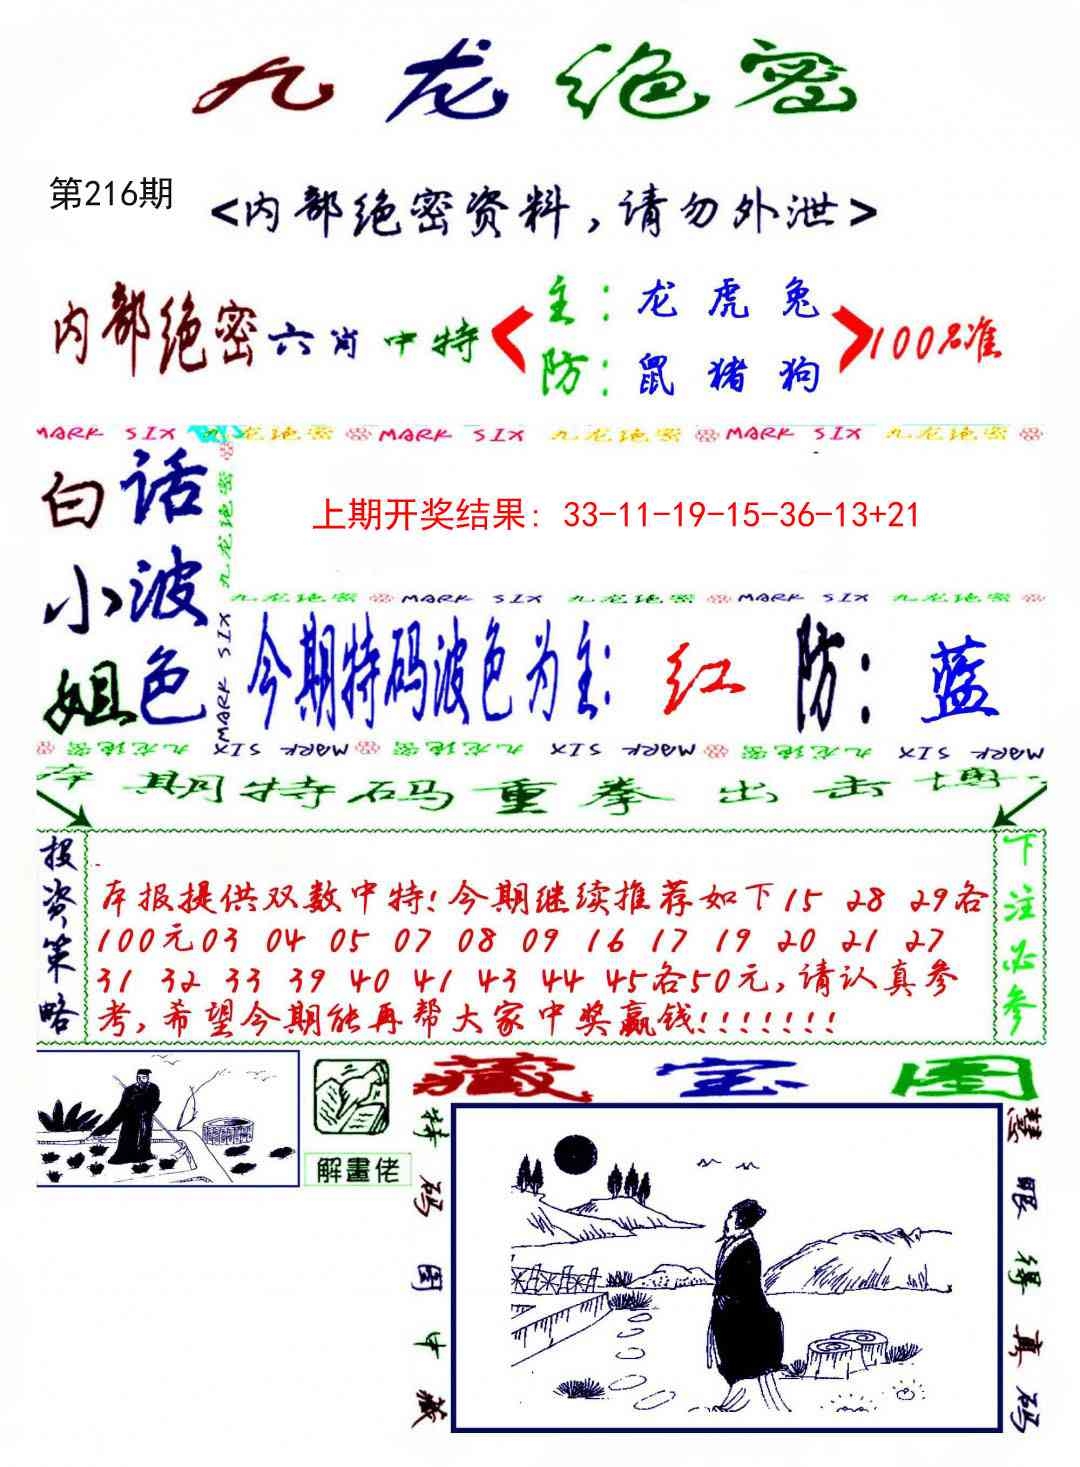 九龙绝密
第216期
<内部绝密资料,请勿外泄>
内部绝密六肖中特
主:龙 虎 兔
防:鼠 猪 狗
100%准
MARK SIX 九龙绝密 MARK SIX 九龙绝密 MARK SIX 九龙绝密
九龙绝密
MARK SIX
白小姐
话波色
上期开奖结果: 33-11-19-15-36-13+21
九龙绝密 MARK SIX 九龙绝密 MARK SIX 九龙绝密
今期特码波色为主: 红 防: 蓝
九龙绝密 MARK SIX 九龙绝密 MARK SIX 九龙绝密 MARK SIX
本期特码重拳出击博
投资策略
本报提供双数中特!今期继续推荐如下15 28 29各
100元03 04 05 07 08 09 16 17 19 20 21 27
31 32 33 39 40 41 43 44 45各50元,请认真参
考,希望今期能再帮大家中奖赢钱!!!!!!!
下注必参
解畫佬
藏宝图
特码图中藏
慧眼得真码